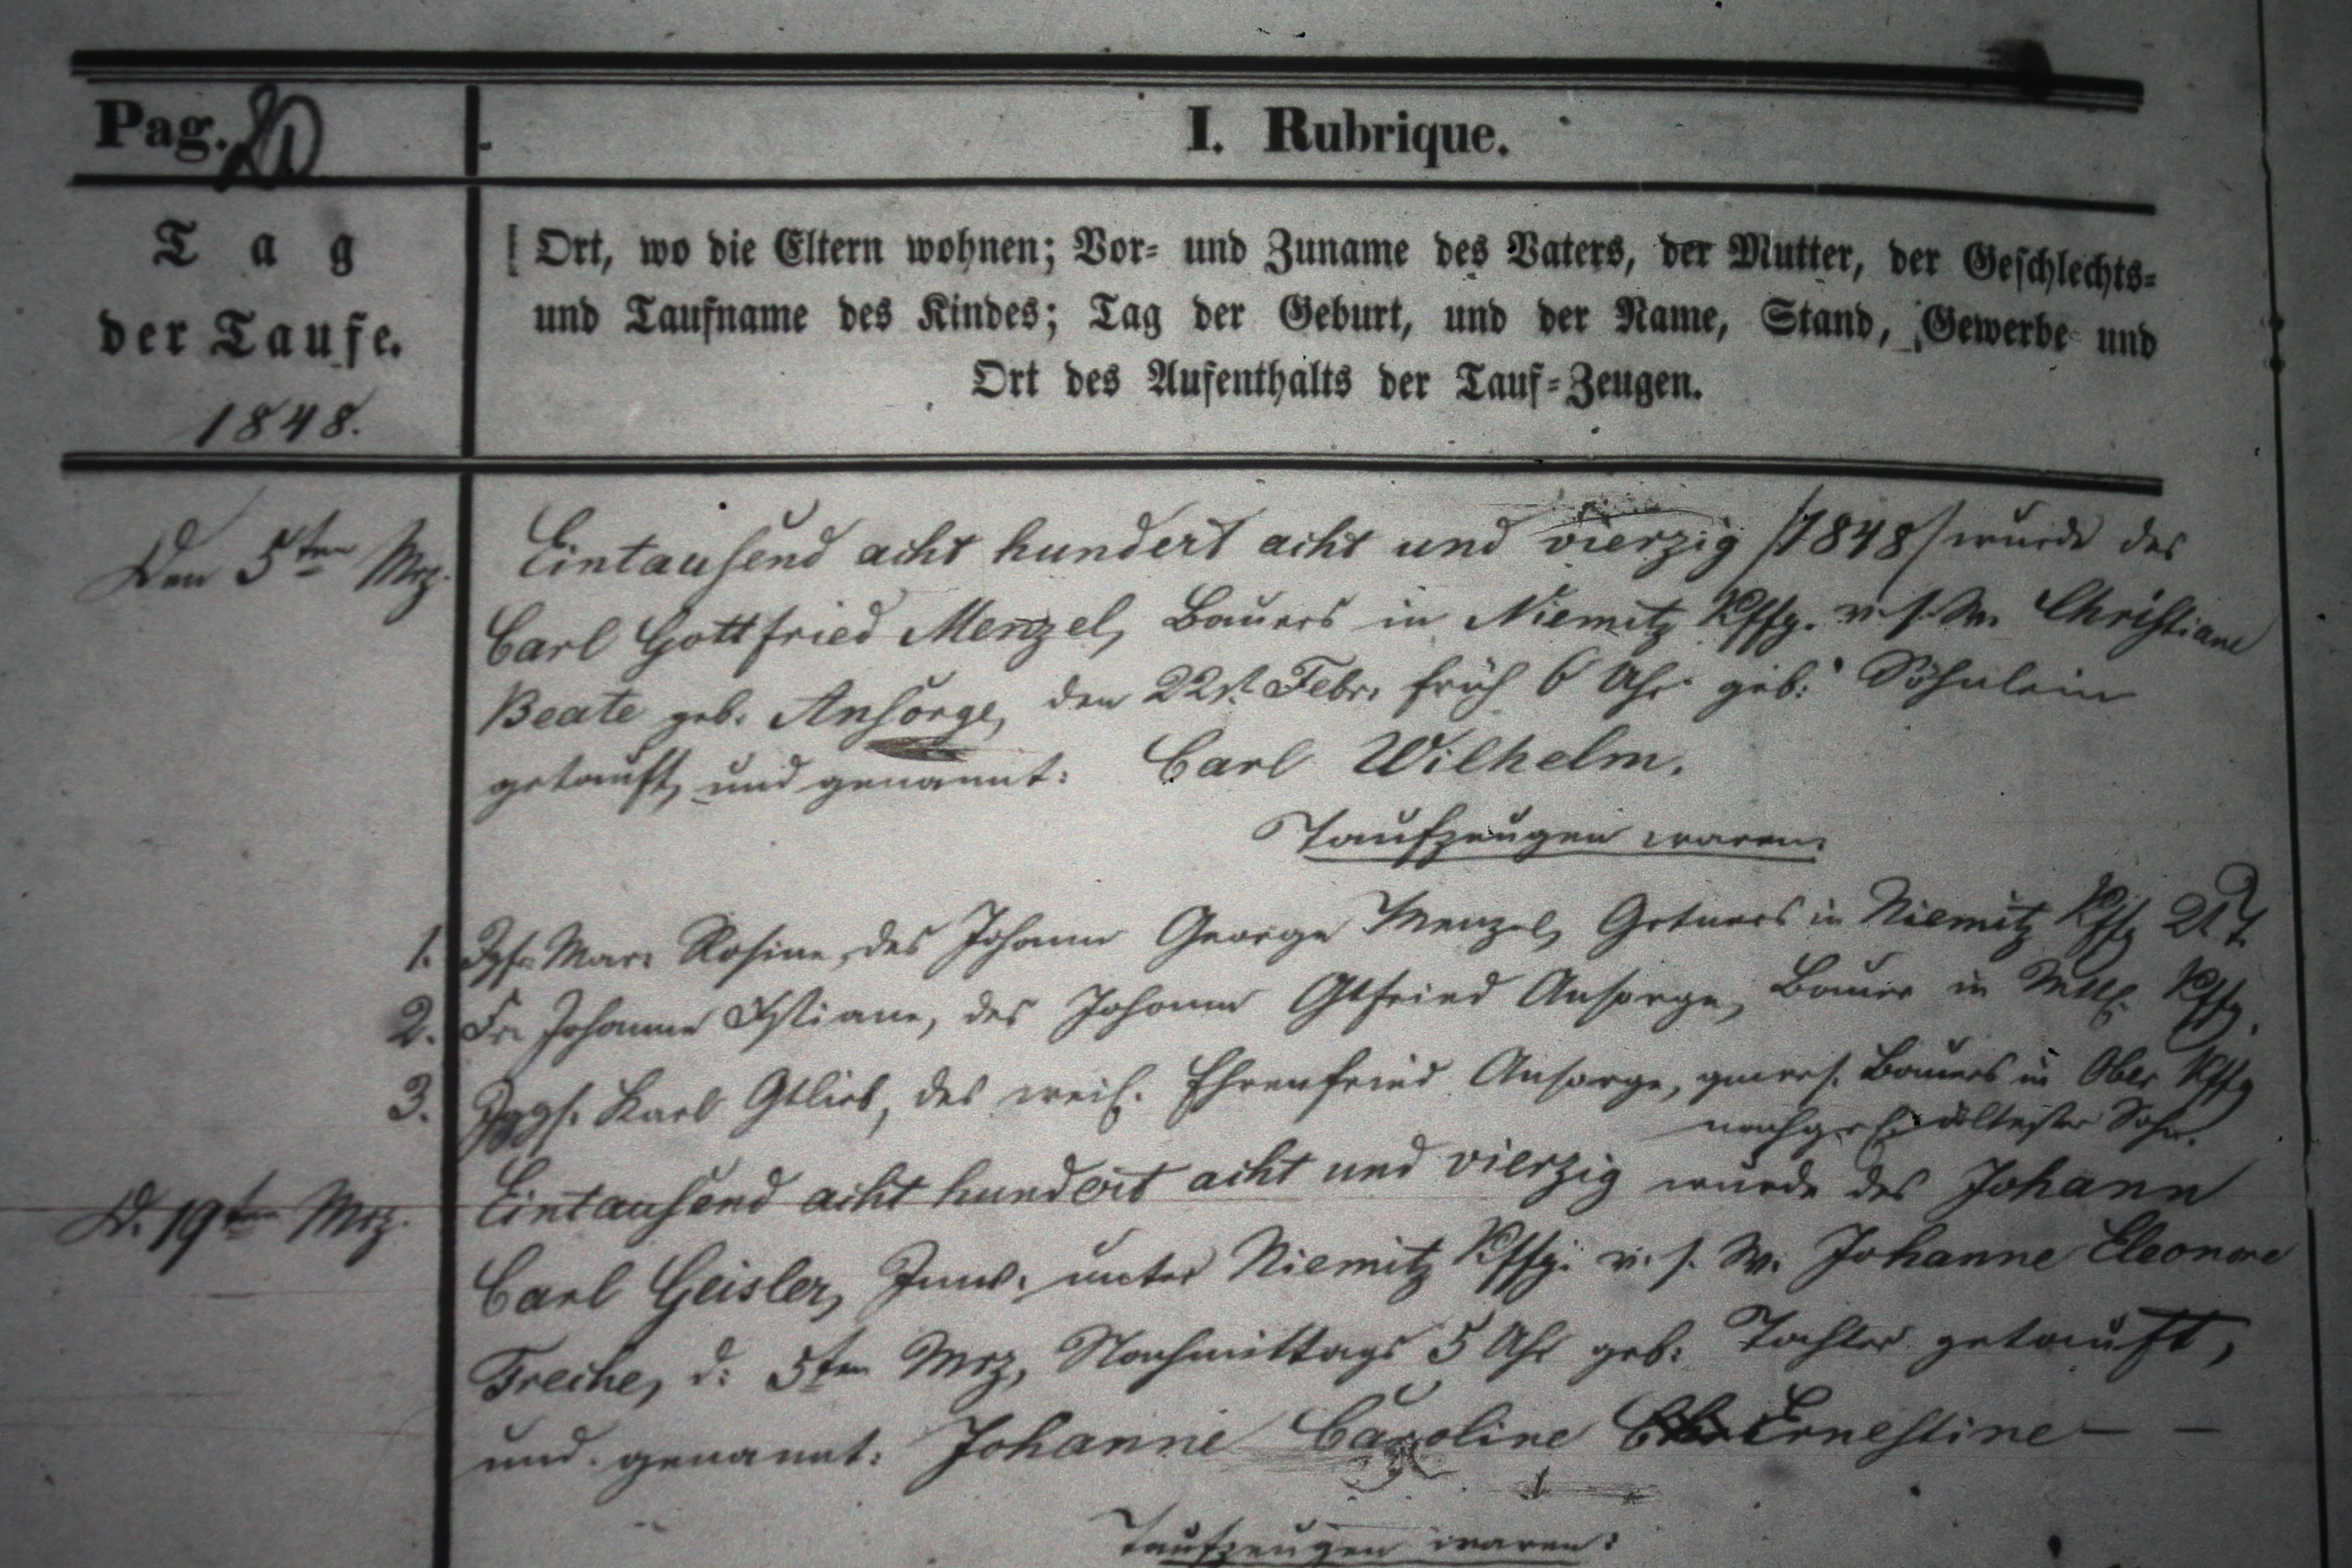 Pag. 20
I. Rubrique.
Tag
der Taufe.
1848.
Ort, wo die Eltern wohnen; Vor- und Zuname des Vaters, der Mutter, der Geschlechts-
und Taufname des Kindes; Tag der Geburt, und der Name, Stand, Gewerbe und
Ort des Aufenthalts der Tauf-Zeugen.
Den 5ten Mrz.
Eintausend acht hundert acht und vierzig /1848/ wurde des
Carl Gottfried Menzel, Bauers in Niemitz Kffg. v. s. W. Christiane
Beate geb. Ansorge, den 22st. Febr. früh 6 Uhr geb. Söhnlein
getauft, und genannt: Carl Wilhelm.
Taufzeugen waren:
1. Jgfr. Mar. Rosine, des Johann George Menzel, Grtners in Niemitz Kffg
2. Fr. Johanne Chstiane, des Johann Gtfried Ansorge, Bauer in Mttl. Kffg.
3. Jggs. Karl Gtlieb, des weil. Ehrenfried Ansorge, gewes. Bauers in Ober Kffg
nachgel. ältester Sohn.
D. 19ten Mrz.
Eintausend acht hundert acht und vierzig wurde des Johann
Carl Geisler, Inw. unter Niemitz Kffg. v. s. W. Johanne Eleonore
Freche, d: 5ten Mrz, Nachmittags 5 Uhr geb. Tochter getauft,
und genannt: Johanne Caroline Ernestine — —
Taufzeugen waren: